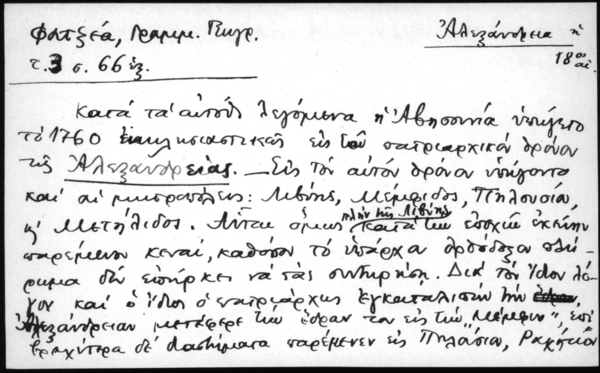 Φατζέα, Γραμμ. Γεωγρ.
Ἀλεξάνδρεια ἡ
τ. 3 σ. 66 ἑξ.
18ος αἰ.
Κατά τά αὐτοῦ λεγόμενα ἡ Ἀβησσυνία ὑπήγετο
τό 1760 ἐκκλησιαστικῶς εἰς τόν πατριαρχικόν θρόνον
τῆς Ἀλεξανδρείας. — Εἰς τόν αὐτόν θρόνον ὑπήγοντο
καί αἱ μητροπόλεις: Λιβύης, Μέμφιδος, Πηλουσίου,
ἡ Μετήλιδος. Αὗται ὅμως πλήν τῆς Λιβύης κατά τήν ἐποχήν ἐκείνην
παρέμενον κεναί, καθόσον τό ὑπάρχον ὀρθόδοξον
δέν ἐπήρκει νά τάς συντηρήση. Διά τόν ἴδιον λό-
γον καί ὁ ἴδιος ὁ πατριάρχης ἐγκαταλιπών τήν
Ἀλεξάνδρειαν μετέφερε τήν ἕδραν του εἰς τήν "Μέμφιν", ἐπί
βραχύτερα δέ διαστήματα παρέμενεν εἰς Πηλούσιον,